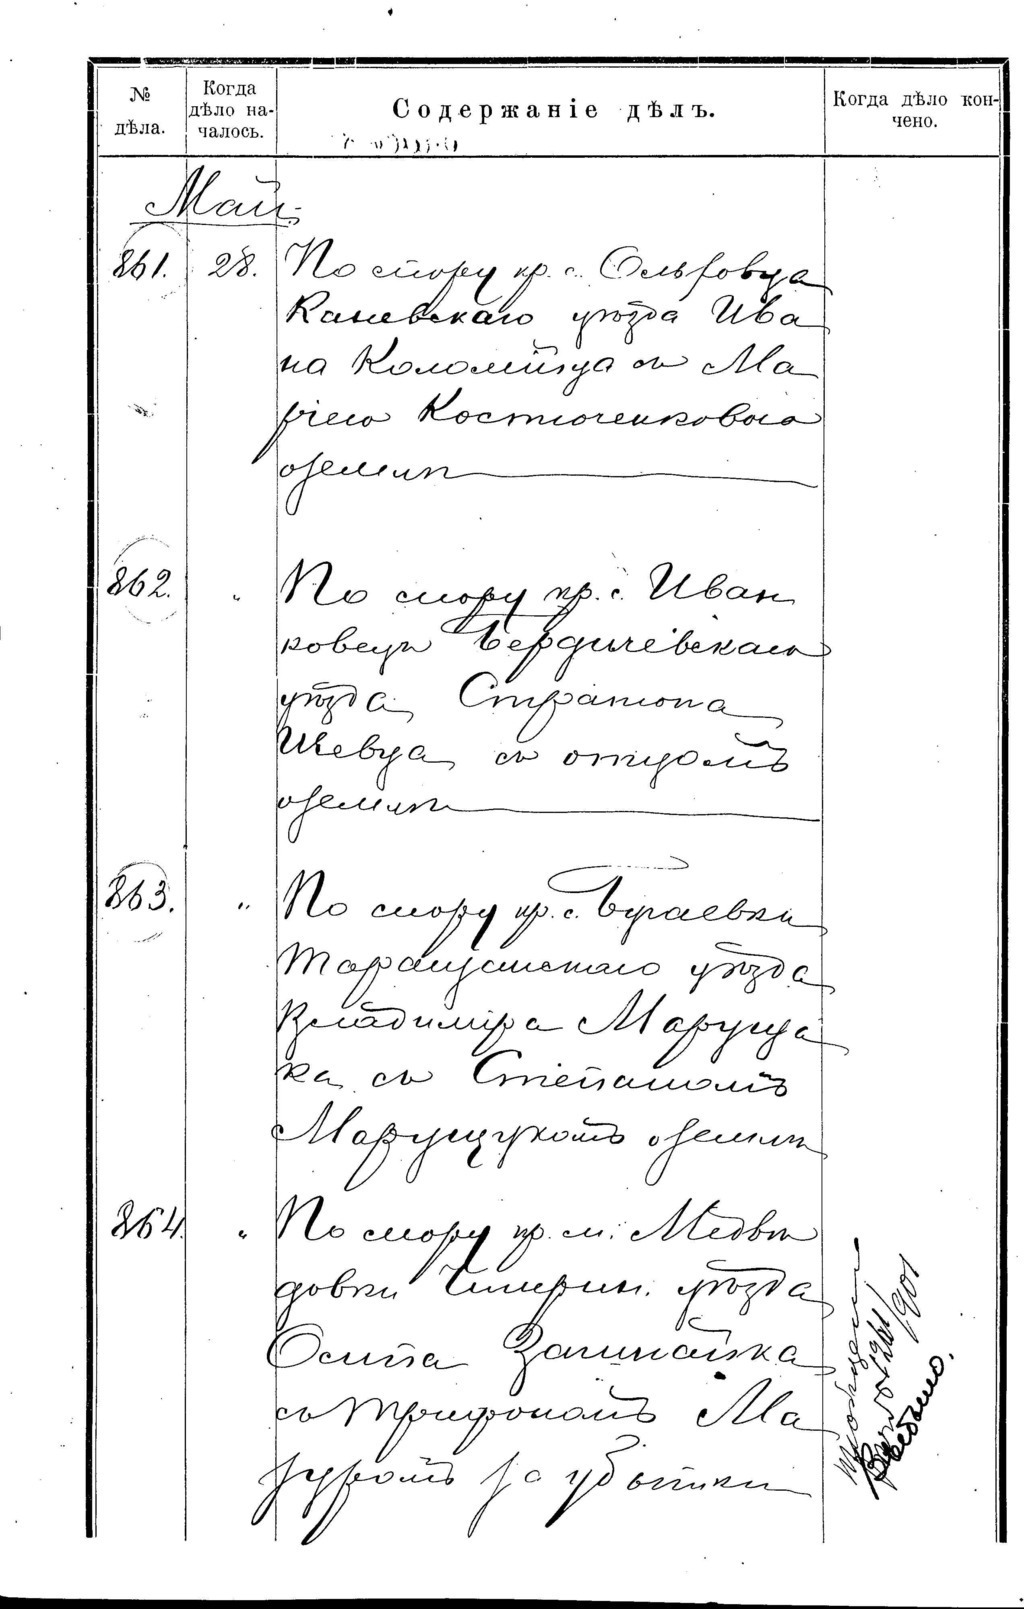 № дѣла.
Когда дѣло на-
чалось.
Содержаніе дѣлъ.
Когда дѣло кон-
чено.
Май.
861. 28. По спору кр. с. Ольховца
Каневскаго уѣзда Ива
на Коломійца съ Ма
ріею Костюченковою
о землѣ
862. " По спору кр. с. Иван
ковецъ Бердичевскаго
уѣзда Стратона
Шевца съ отцомъ
о землѣ
863. " По спору кр. с. Бугаевки
Таращанскаго уѣзда
Владиміра Марущa
ка съ Степаномъ
Марущукомъ о землѣ
864. " По спору кр. м. Медвѣ
довки Чигирин. уѣзда
Осипа
съ Трифономъ Ма
зуромъ за убытки